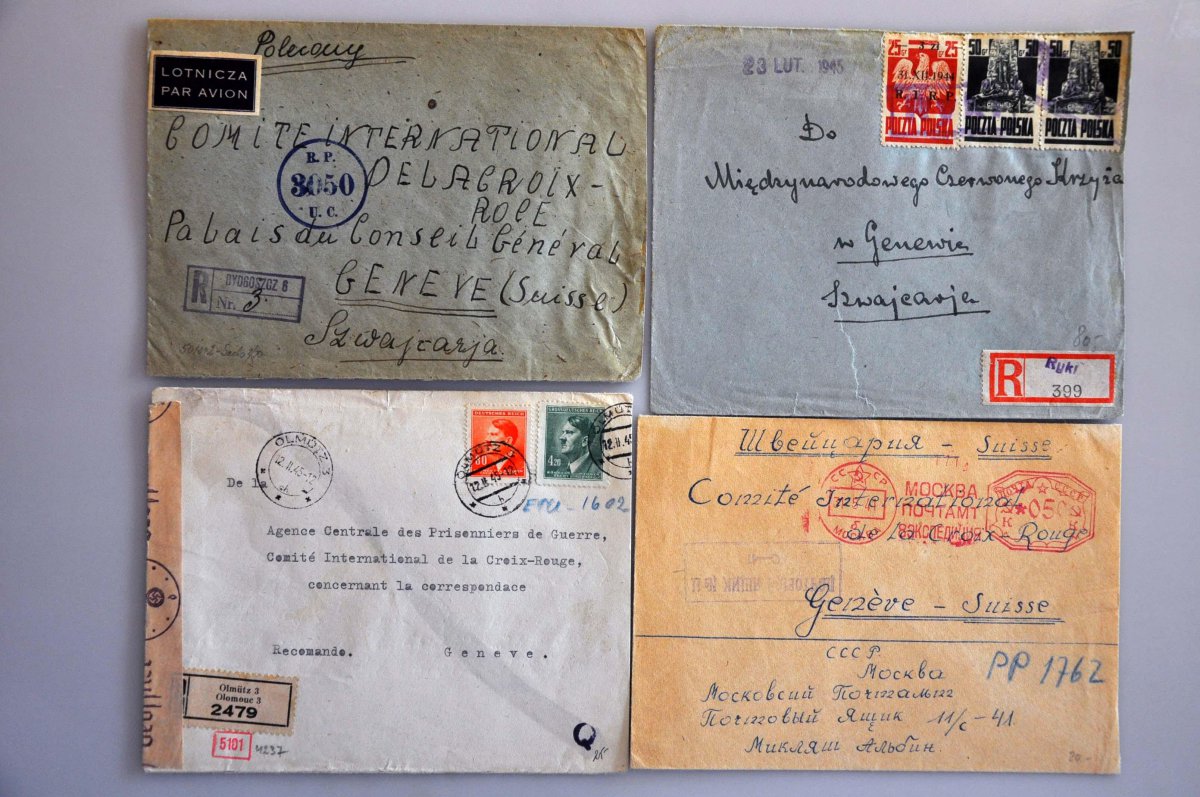 Polecony
LOTNICZA
PAR AVION
COMITE INTERNATIONAL
DELACROIX-
ROGE
Palais du Conseil Général
GENEVE (Suisse)
Szwajcarja.
R.P.
3050
U.C.
R
BYDGOSZCZ 6
Nr. 3
23 LUT. 1945
25 25
3 Zł
31.XII.1944
R.T.R.P.
POCZTA POLSKA
50 50
POCZTA POLSKA
50
POCZTA POLSKA
Do
Międzynarodowego Czerwonego Krzyża
w Genewie
Szwajcarja
80-
R
399
OLMÜTZ 3
12.II.45-12
DEUTSCHES REICH
80
GROSSDEUTSCHES REICH
4.20
OLMÜTZ 3
12.II.45
OLMÜTZ
12.II.45
1602
De la
Agence Centrale des Prisonniers de Guerre,
Comité International de la Croix-Rouge,
concernant la correspondace
Recomando. Geneve.
Geöffnet
Olmütz 3
Olomouc 3
2479
5101
4237
Q
25
Швейцария - Suisse
СССР
МОСКВА
ПОЧТАМТ
ЭКСПЕДИЦИЯ
СССР
050
Comité International
de la Croix-Rouge
Genève - Suisse
СССР
Москва
PP 1762
Московсий Почтамт
Почтовый Ящик 11/с-41.
Микляш Альбин.